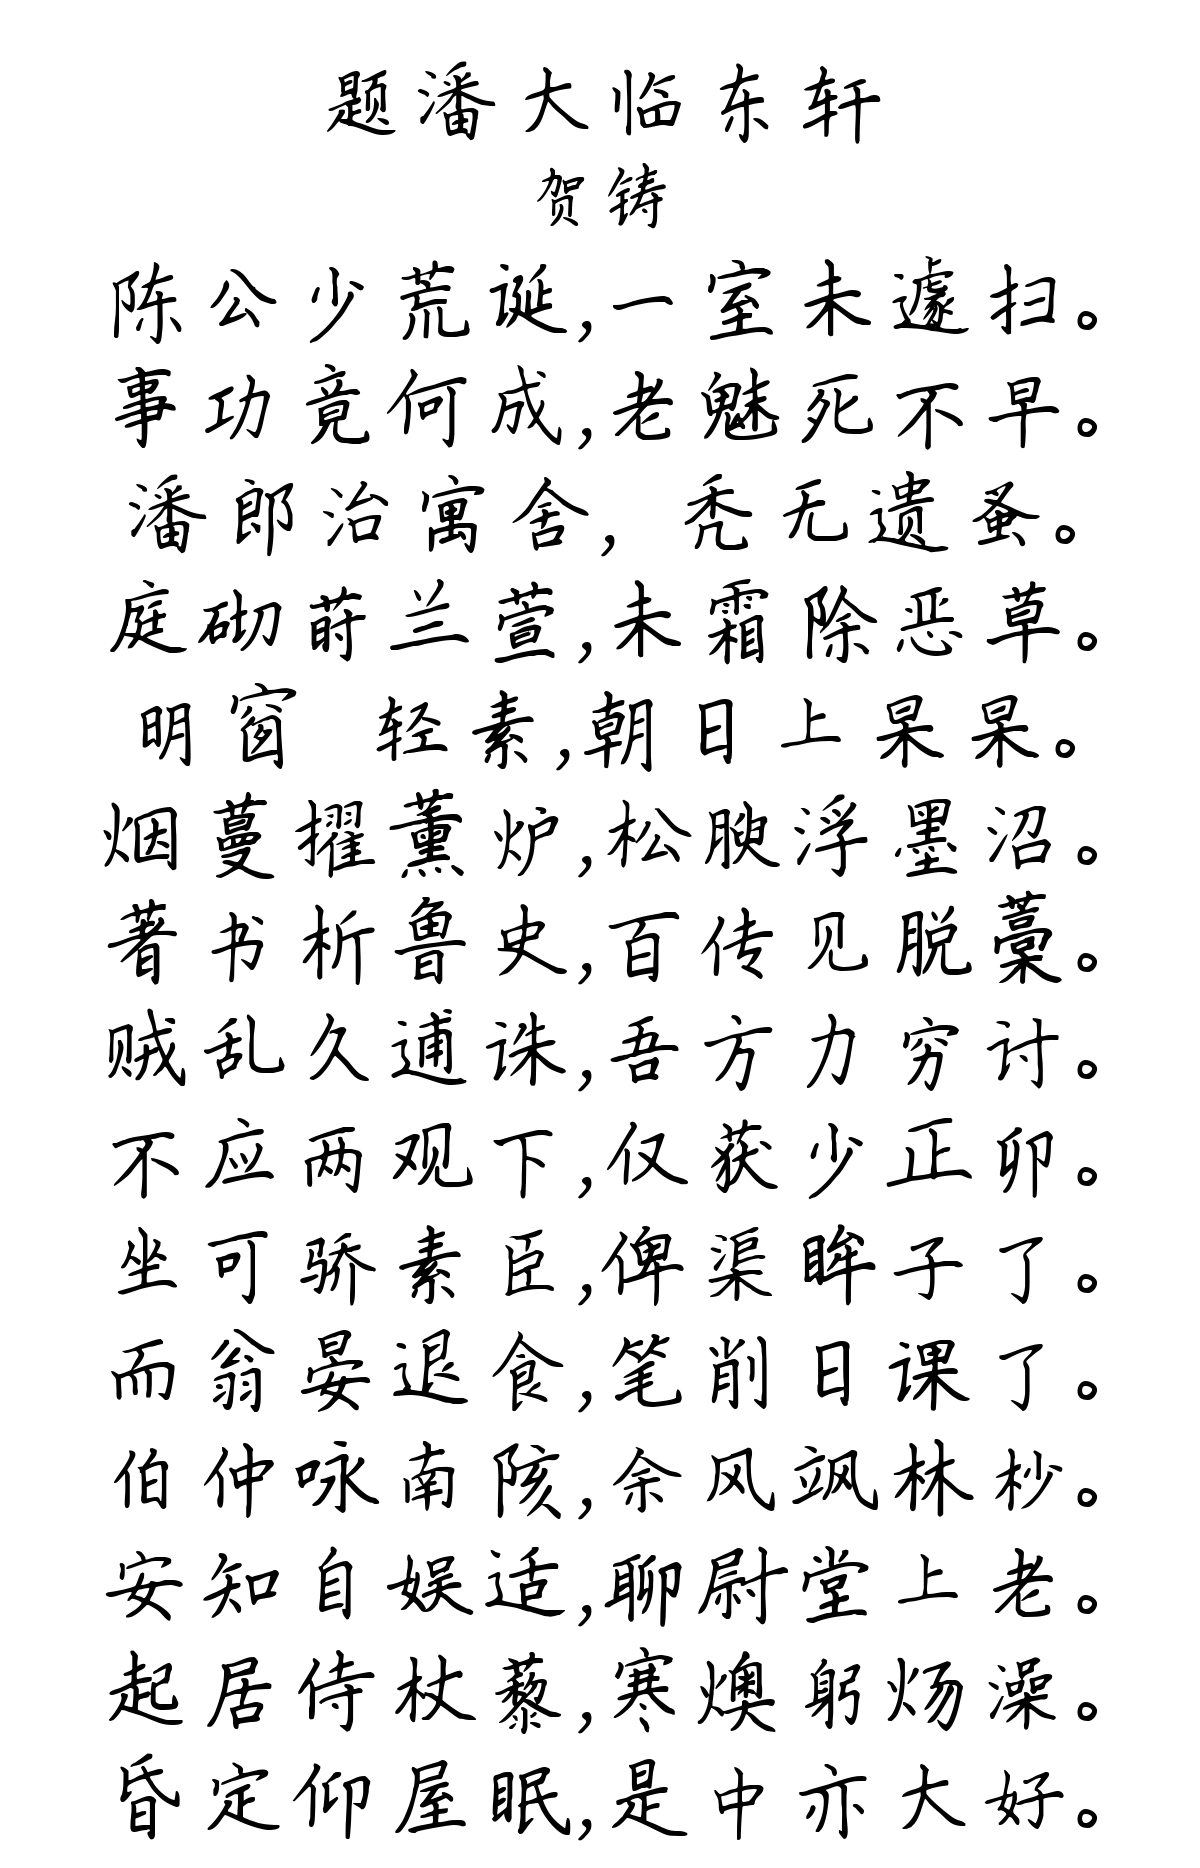 题潘大临东轩
贺铸
陈公少荒诞,一室未遽扫。
事功竟何成,老魅死不早。
潘郎治寓舍, 秃无遗蚤。
庭砌莳兰萱,未霜除恶草。
明窗 轻素,朝日上杲杲。
烟蔓擢薰炉,松腴浮墨沼。
著书析鲁史,百传见脱藁。
贼乱久逋诛,吾方力穷讨。
不应两观下,仅获少正卯。
坐可骄素臣,俾渠眸子了。
而翁晏退食,笔削日课了。
伯仲咏南陔,余风飒林杪。
安知自娱适,聊尉堂上老。
起居侍杖藜,寒燠躬炀澡。
昏定仰屋眠,是中亦大好。